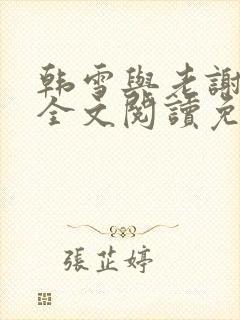 韩雪與老謝
全文閱讀免
張芷婷